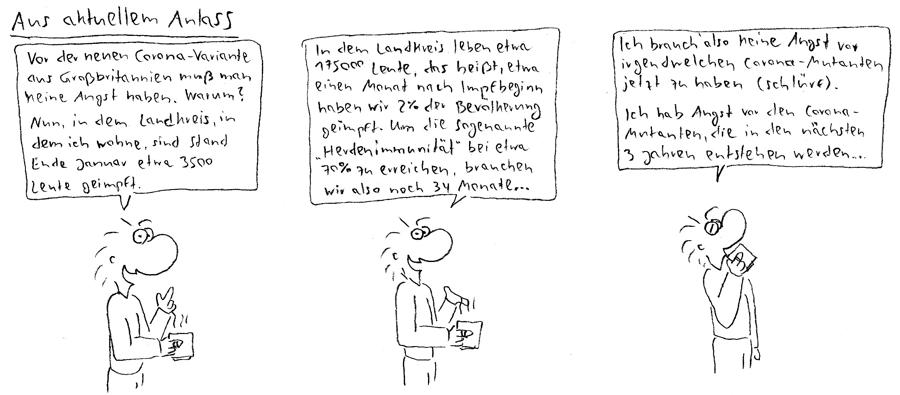 Aus aktuellem Anlass
Vor der neuen Corona-Variante
aus Großbritannien muß man
keine Angst haben. Warum?
Nun, in dem Landkreis, in
dem ich wohne, sind Stand
Ende Januar etwa 3500
Leute geimpft.
In dem Landkreis leben etwa
175000 Leute, das heißt, etwa
einen Monat nach Impfbeginn
haben wir 2% der Bevölkerung
geimpft. Um die sogenannte
„Herdenimmunität" bei etwa
70% zu erreichen, brauchen
wir also noch 34 Monate...
Ich brauch also keine Angst vor
irgendwelchen Corona-Mutanten
jetzt zu haben (schlürf).
Ich hab Angst vor den Corona-
Mutanten, die in den nächsten
3 Jahren entstehen werden...